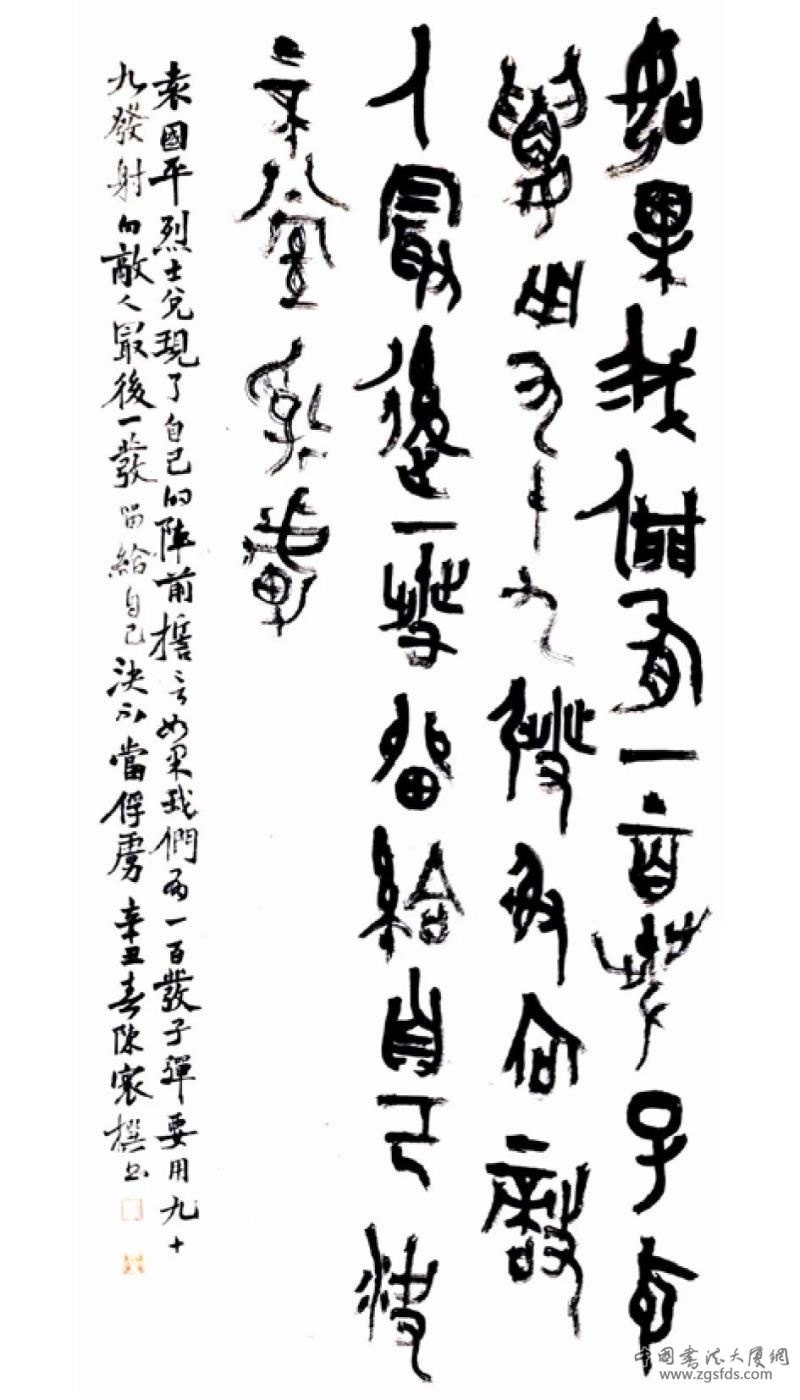 如果我們有一百發子彈
要用九十九發射向敵
人最後一發留給自己決
不當俘虜
袁國平烈士兌現了自己的陣前誓言如果我們有一百發子彈要用九十
九發射向敵人最後一發留給自己決不當俘虜 辛丑春陳撰書
中國書法大廈網
www.zgsfds.com